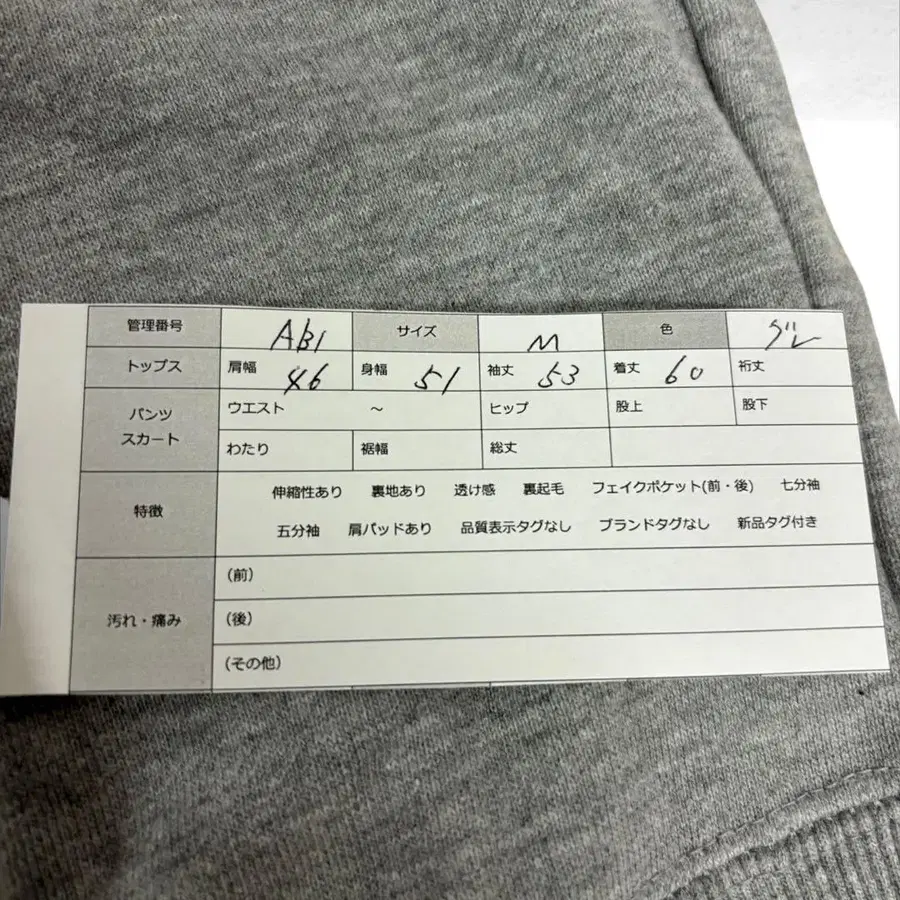 管理番号 AB1 サイズ M 色 グレ
トップス 肩幅 46 身幅 51 袖丈 53 着丈 60 裄丈
パンツ スカート ウエスト ～ ヒップ 股上 股下
わたり 裾幅 総丈
特徴 伸縮性あり 裏地あり 透け感 裏起毛 フェイクポケット(前・後) 七分袖
五分袖 肩パッドあり 品質表示タグなし ブランドタグなし 新品タグ付き
汚れ・痛み (前)
(後)
(その他)